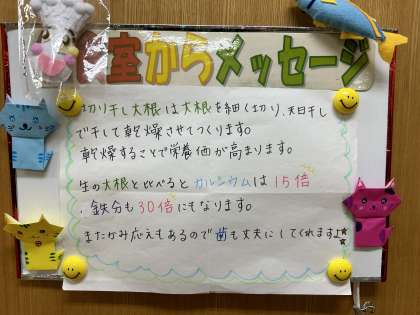 室からメッセージ
切り干し大根は大根を細く切り、天日干し
で干して乾燥させてつくります。
乾燥することで栄養価が高まります。
生の大根と比べるとカルシウムは15倍
、鉄分も30倍にもなります。
またかみ応えもあるので歯も丈夫にしてくれます♪